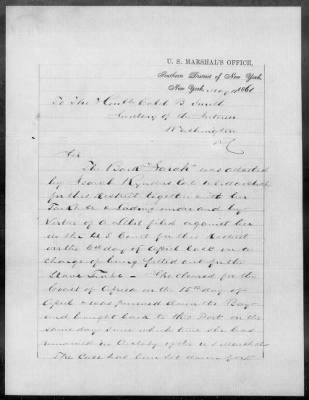 U. S. MARSHAL'S OFFICE,
Southern District of New York,
New York, May 1861
To The Honble Caleb B Smith
Secretary of the Interior
Washington
Sir
The Bark "Sarah" was
by Isaiah Rynders late U S Marshal
for this District together with her
Tackle & lading and by
Virtue of a Libel filed against her
in the U S Court for this District
on the 6th day of April on a
charge of being fitted out for the
Slave Trade – She cleared for the
Coast of Africa on the 15th day of
April & was pursued down the Bay
and brought back to this Port on the
same day since which time she has
remained in Custody of the U S Marshal
The Case has been set down for